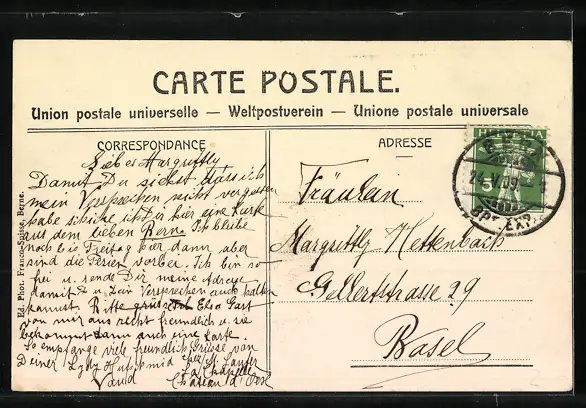 CARTE POSTALE.
Union postale universelle — Weltpostverein — Unione postale universale
CORRESPONDANCE
Lieber Margrittly
Damit Du siehst dass ich
mein Versprechen nicht vergessen
habe schicke ich Dir hier eine Karte
aus dem lieben Berne. Ich bleibe
noch bis Freitag hier dann aber
sind die Ferien vorbei. Ich bin so
frei u. sende Dir meine Adresse
damit Du Dein Versprechen auch halten
kannst. Bitte grüsse Elsa Gast
von mir aus recht freundlich u. sie
bekommt dann auch eine Karte.
So empfange viele freundliche Grüsse von
Deiner Lydy chez M.
Vaud La Chapelle
Ed. Phot. Franco-Suisse, Berne.
ADRESSE
HELVETIA
5
BERN
24.V.09.
Fräulein
Margrittly Hettenbach
Gellertstrasse 29
Basel